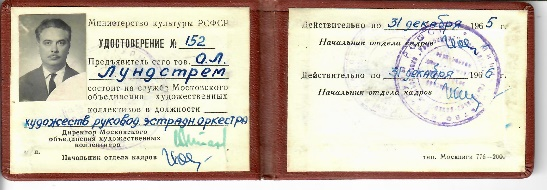 Министерство культуры РСФСР
УДОСТОВЕРЕНИЕ № 152
Предъявитель сего тов. О.Л.
Лундстрем
состоит на службе Московского
объединения художественных
коллективов в должности
художеств. руковод. эстрадн. оркестра
Директор Московского
объединения художественных
коллективов
Начальник отдела кадров
Действительно по 31 декабря 1965
Начальник отдела кадров
Действительно по 31 декабря 1966
Начальник отдела кадров